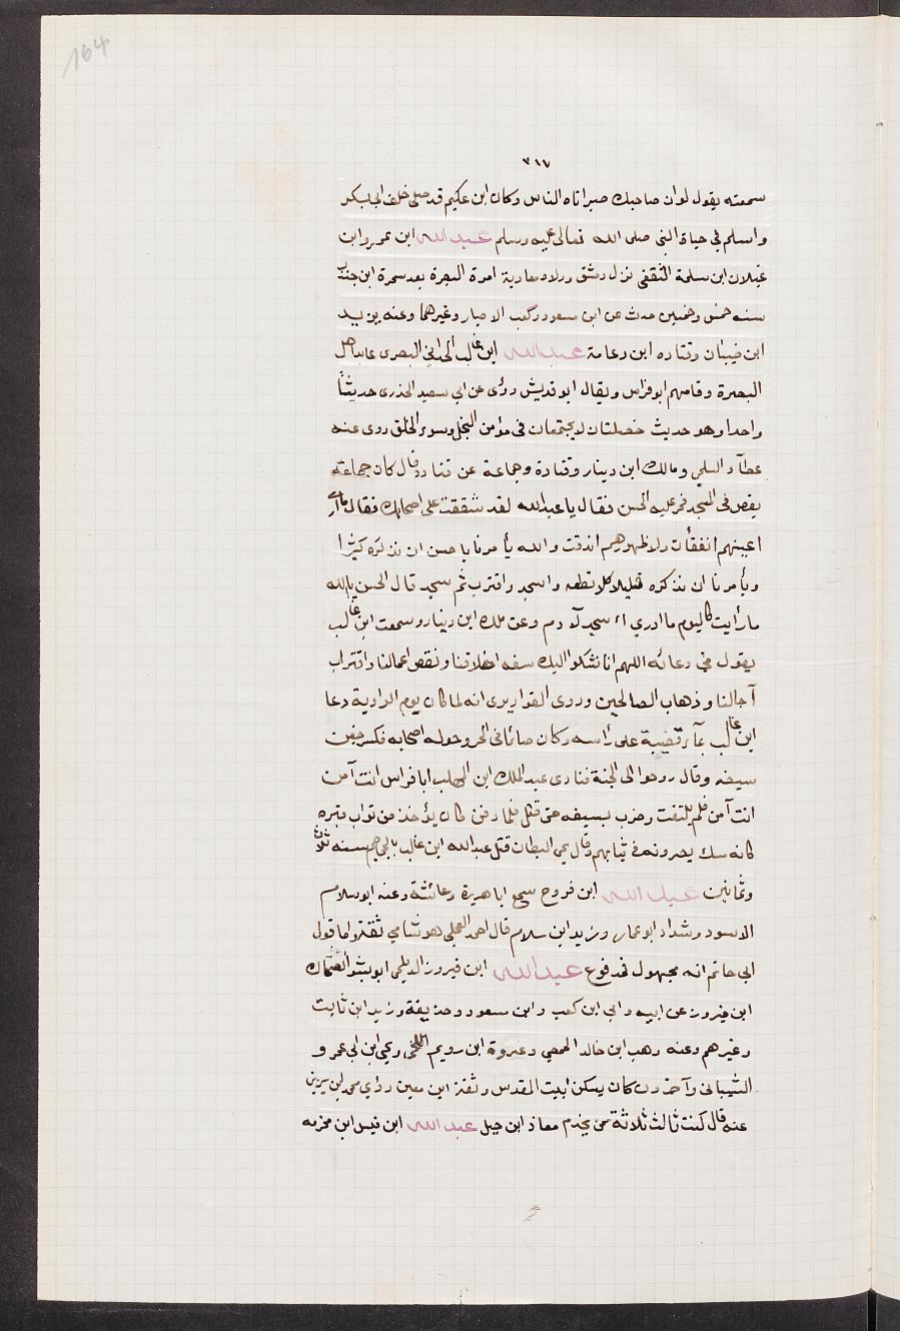 164
٣١٧
سمعته يقول لو ان صاحبك صبر اتاه الناس وكان ابن عكيم قد صلى خلف ابى بكر
واسلم في حياة النبى صلى الله تعالى عليه وسلم عبد الله ابن عمرو ابن
غيلان ابن سلمة الثقفى نزل دمشق وولاه معاوية امرة البصرة بعد سمرة ابن جندب
سنه خمس وخمسين حدث عن ابن مسعود وكعب الاحبار وغيرهما وعنه يزيد
ابن ضبيان وقتاده ابن دعامة عبد الله ابن غالب الحدانى البصرى عابد اهل
البصرة وقاصهم ابو فراس ويقال ابو قديش روى عن ابي سعيد الخذرى حديثا
واحدا وهو حديث خصلتان لا يجتمعان في مؤمن البخل وسوء الخلق روى عنه
عطآء السلمى ومالك ابن دينار وقتادة وجماعة عن قتاده قال كان جماعته
يقص فى المسجد فمر عليه الحسن فقال يا عبد الله لقد شققت على اصحابك فقال ما ارى
اعينهم انفقأت ولا ظهورهم اندقت والله يأمرنا يا حسن ان نذكره كثيرا
ويأمرنا ان نذكره قليلا كلا لا تطعه واسجد واقترب ثم سجد قال الحسن يا لله
ما رأيت كاليوم ما ادري ء اسجد ام لا وعن ملك ابن دينار وسمعت ابن غالب
يقول فى دعائه اللهم انا نشكو اليك سفه اخلاقنا ونقص اعمالنا واقتراب
آجالنا وذهاب الصالحين وروى القواريرى انه لما كان يوم الزاوية دعا
ابن غالب بمآء فصبه على رأسه وكان صائما فى الحر وحوله اصحابه فكسر جفن
سيفه وقال روحوا الى الجنة فنادى عبد الملك ابن المهلب ابا فراس انت آمن
انت آمن فلم يلتفت وضرب بسيفه حتى قتل فلما دفن كان يؤخذ من تراب قبره
كانه مسك يصرونه في ثيابهم وقال يحى القطان قتل عبد الله ابن غالب بالجماجم سنه ثلاث
وثمانين عبد الله ابن فروخ سمع ابا هريرة وعائشة وعنه ابو سلام
الاسود وشداد ابو عمار وزيد ابن سلام قال احمد العجلى هو شامي ثقة واما قول
ابي حاتم انه مجهول فمدفوع عبد الله ابن فيروز الديلمى ابو بشر الضحاك
ابن فيروز عن ابيه وابي ابن كعب وابن مسعود وحذيفة وزيد ابن ثابت
وغيرهم وعنه وهب ابن خالد الحمصي وعروة ابن رويم اللخمى ويحيى ابن ابى عمرو
الشيبانى وآخرون كان يسكن ببيت المقدس وثقة ابن معين روى محمد ابن سيرين
عنه قال كنت ثالث ثلاثة ممن يخدم معاذ ابن جبل عبد الله ابن قيس ابن مخرمه